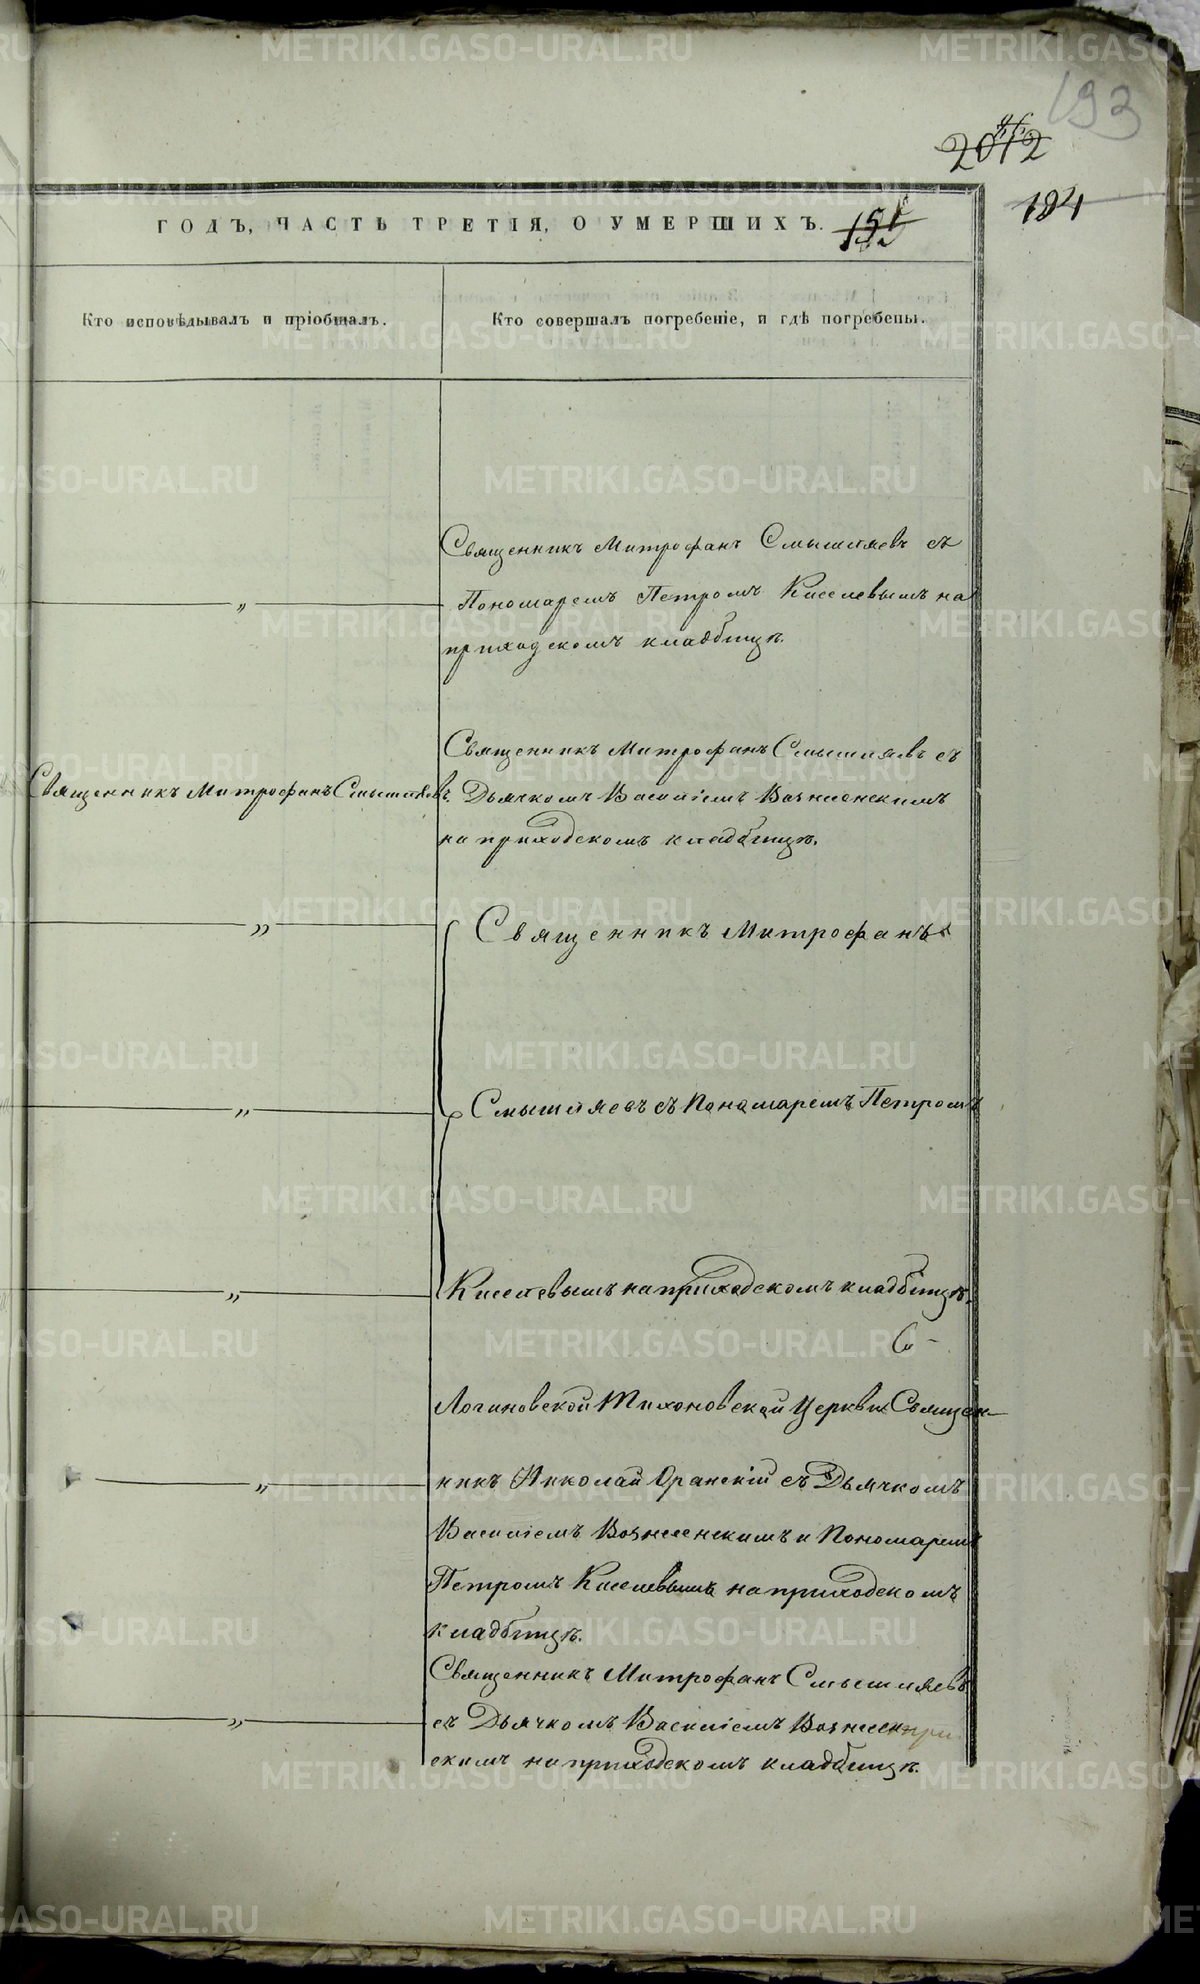 193
2012
184
ГОДЪ, ЧАСТЬ ТРЕТІЯ, О УМЕРШИХЪ. 151
Кто исповѣдывалъ и пріобщалъ.
Кто совершалъ погребеніе, и гдѣ погребены.
Священникъ Митрофанъ Смышляевъ съ
„
Пономаремъ Петромъ Киселевымъ на
приходскомъ кладбищѣ.
Священникъ Митрофанъ Смышляевъ съ
Священникъ Митрофанъ Смышляевъ.
Дьячкомъ Василіемъ Вознесенскимъ
на приходскомъ кладбищѣ.
„
Священникъ Митрофанъ
„
Смышляевъ съ Пономаремъ Петромъ
„
Киселевымъ на приходскомъ кладбищѣ.
Логиновской Тихоновской Церкви Священ-
„
никъ Николай Оранскій съ Дьячкомъ
Василіемъ Вознесенскимъ и Пономаремъ
Петромъ Киселевымъ на приходскомъ
кладбищѣ.
Священникъ Митрофанъ Смышляевъ
„
съ Дьячкомъ Василіемъ Вознесен
скимъ на приходскомъ кладбищѣ.
METRIKI.GASO-URAL.RU